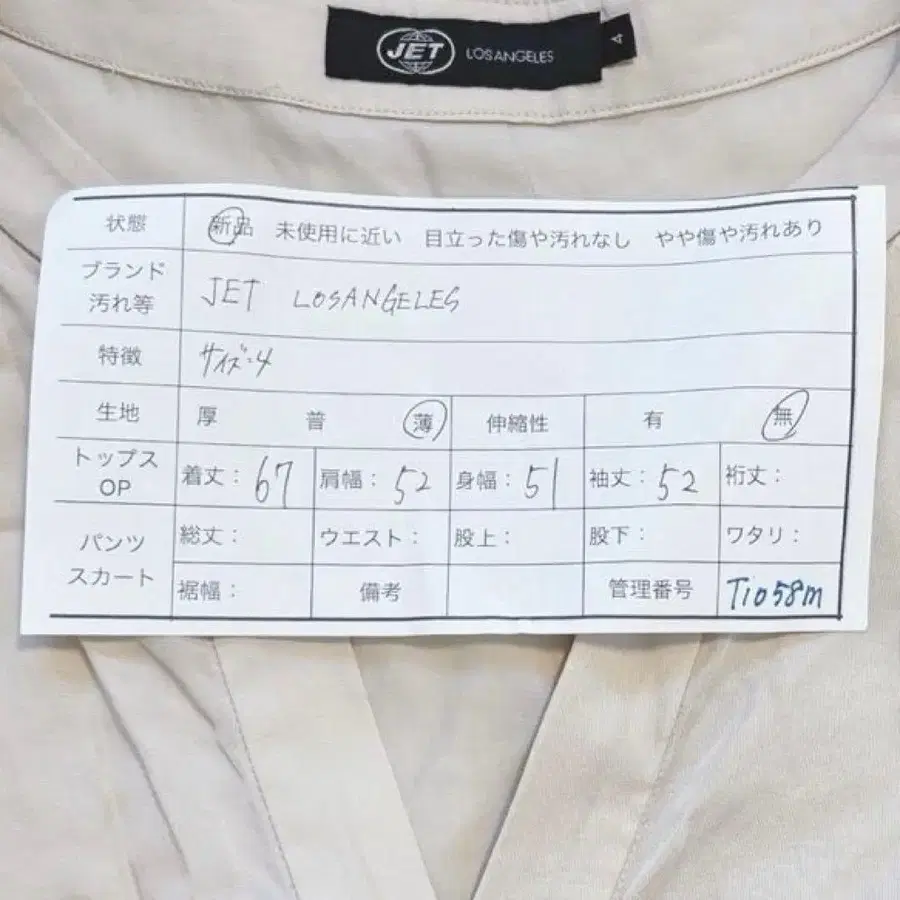 JET LOSANGELES 4
状態 新品 未使用に近い 目立った傷や汚れなし やや傷や汚れあり
ブランド
汚れ等
JET LOSANGELES
特徴 サイズ:4
生地 厚 普 薄 伸縮性 有 無
トップス
OP
着丈: 67 肩幅: 52 身幅: 51 袖丈: 52 裄丈:
パンツ
スカート
総丈: ウエスト: 股上: 股下: ワタリ:
裾幅: 備考 管理番号 T1058m